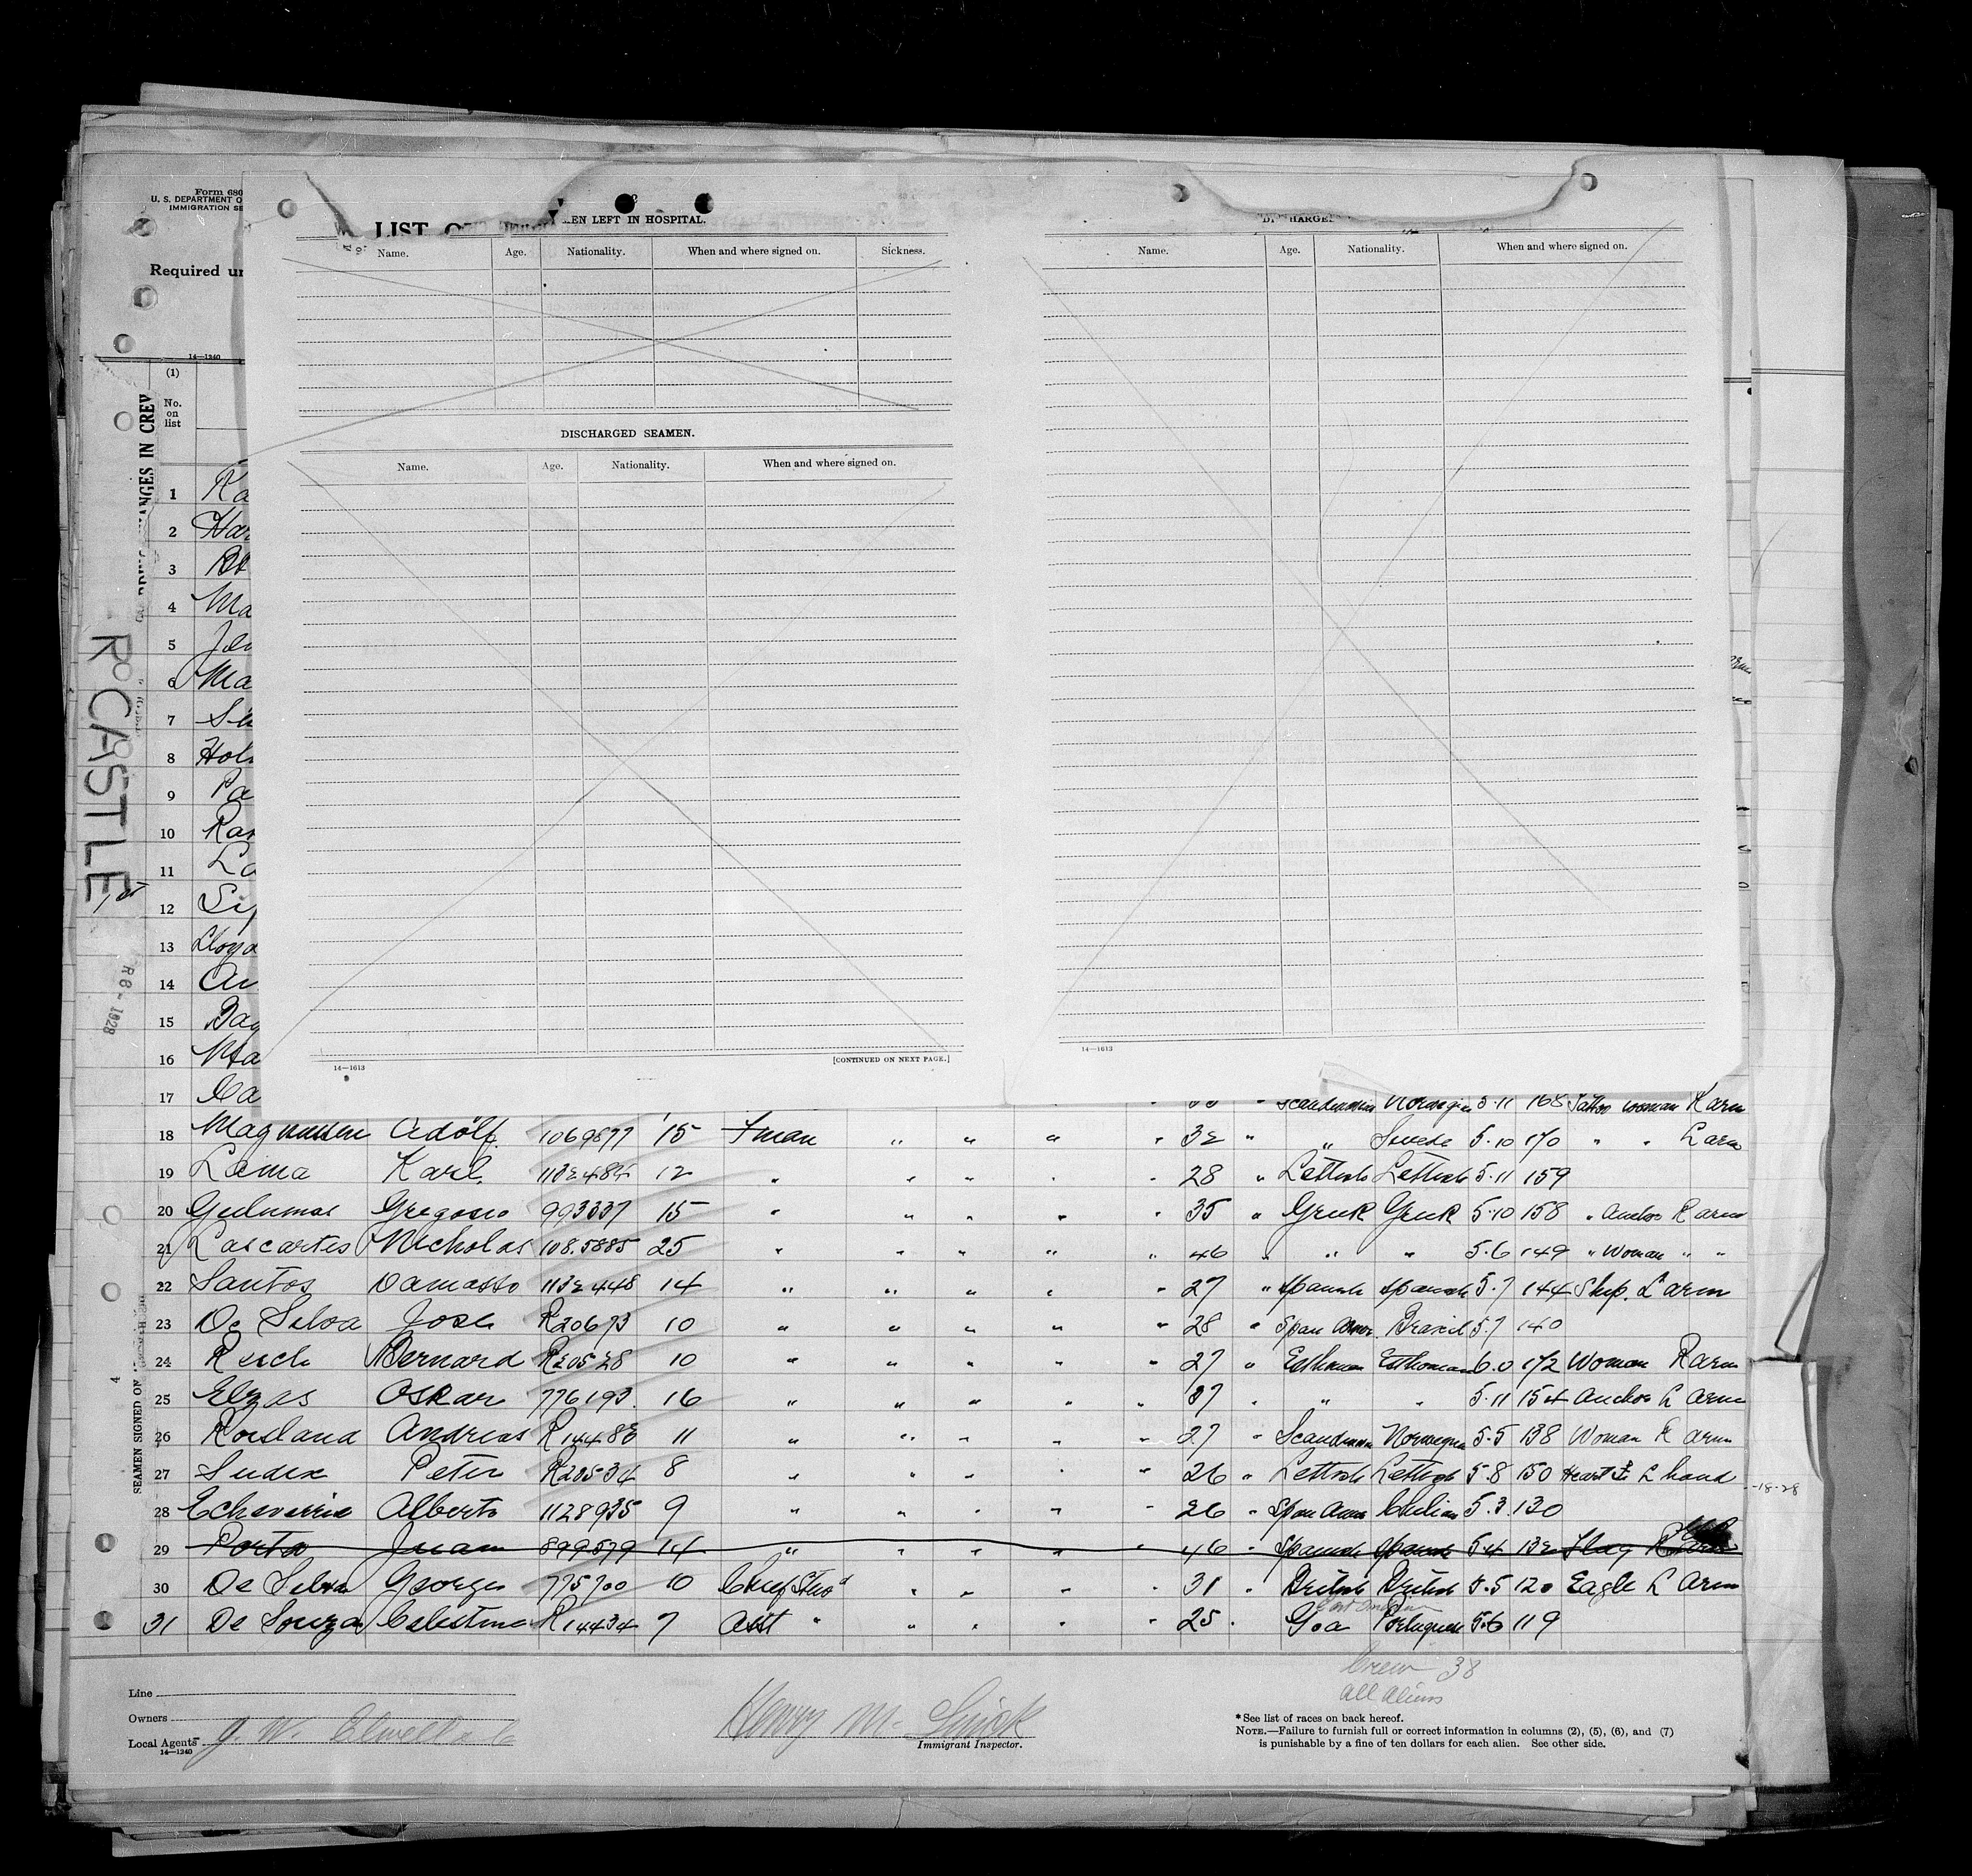 Form 680
U. S. DEPARTMENT O
IMMIGRATION SE
LIST O
EN LEFT IN HOSPITAL.
Name. Age. Nationality. When and where signed on. Sickness.
Name. Age. Nationality. When and where signed on.
Required un
14—1240
(1)
No. on list
DISCHARGED SEAMEN.
Name. Age. Nationality. When and where signed on.
ANGES IN CREW
R CASTLE
1928
SEAMEN SIGNED ON
1 Ka
2 Har
3
4 Ma
5 Jen
6 Ma
7
8 Hol
9 Pa
10 Ram
11 La
12
13 Lloyd
14
15 Bag
16 Ma
17
14—1613
[CONTINUED ON NEXT PAGE.]
14—1613
Scandinavian Norwegian 5·11 168 Tattoo woman R arm
18 Magnussen Adolf 1069877 15 Fman " " " " 32 " " Swede 5·10 170 " " L arm
19 Lama Karl 1132484 12 " " " " " 28 " Lettish Lettish 5·11 159
20 Gregorio 993337 15 " " " " " 35 " Greek Greek 5·10 158 " Anchor R arm
21 Lascartes Nicholas 108.5885 25 " " " " " 46 " " " 5·6 149 " Woman " "
22 Santos Damasso 1132448 14 " " " " " 27 " Spanish Spanish 5·7 144 Ship. L arm
23 De Silva Jose R20673 10 " " " " " 28 " Span Amer. Brazil 5·7 140
24 Bernard R20528 10 " " " " " 27 " Esthonian Esthonian 6·0 172 Woman R arm
25 Elzas Oskar 776193 16 " " " " " 37 " " " 5·11 154 Anchor L arm
26 Rosland Andreas 11 " " " " " 27 " Scandinavian Norwegian 5·5 138 Woman R arm
27 Peter R20534 8 " " " " " 26 " Lettish Lettish 5·8 150 Heart L hand
-18-28
28 Echaverria Alberto 1128935 9 " " " " " 26 " Span Amer Chilian 5.3. 130
29 Porta Juan 899579 14 " " " " " 46 " Spanish Spanish 5·4 132 Flag R arm
30 De Silva George 775700 10 Chief Stwd " " " " 31 " British British 5·5 120 Eagle L arm
East Indian
31 De Souza Celestino R14434 7 Asst " " " " " 25 . Goa Portuguese 5·6 119
Crew 38
All aliens
Line
Owners
Local Agents J. W. Elwell & Co
14—1240
Henry M.
Immigrant Inspector.
* See list of races on back hereof.
NOTE.—Failure to furnish full or correct information in columns (2), (5), (6), and (7)
is punishable by a fine of ten dollars for each alien. See other side.